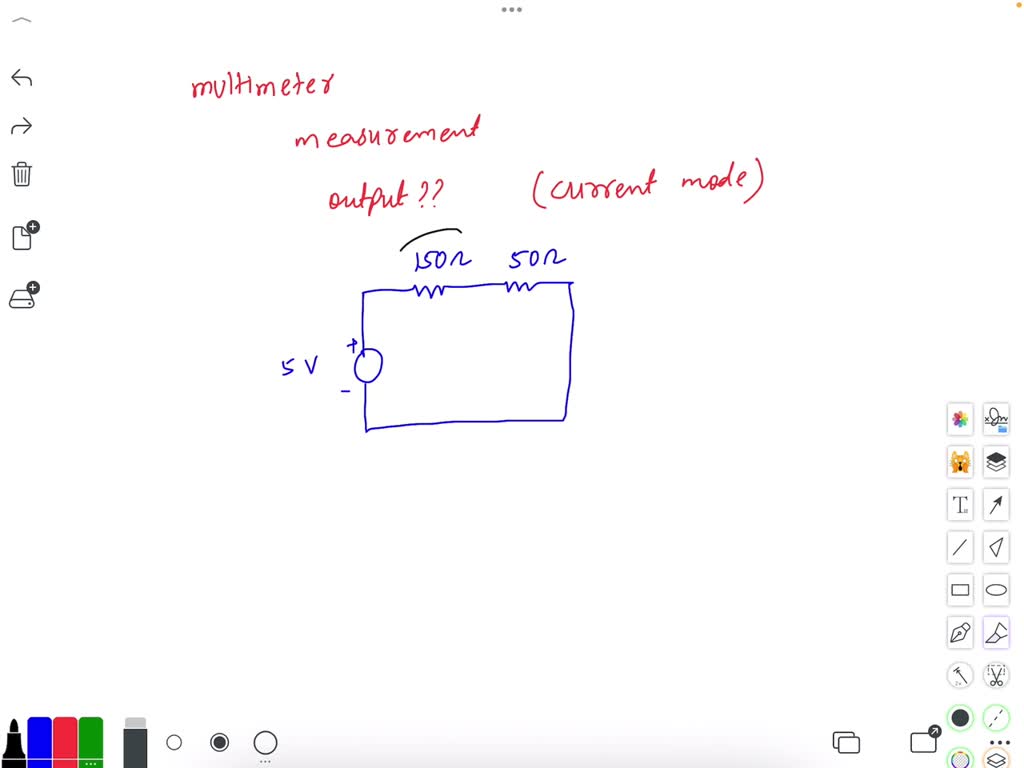 multimeter
measurement
output ?? (current mode)
150Ω 50Ω
+
5 V
-